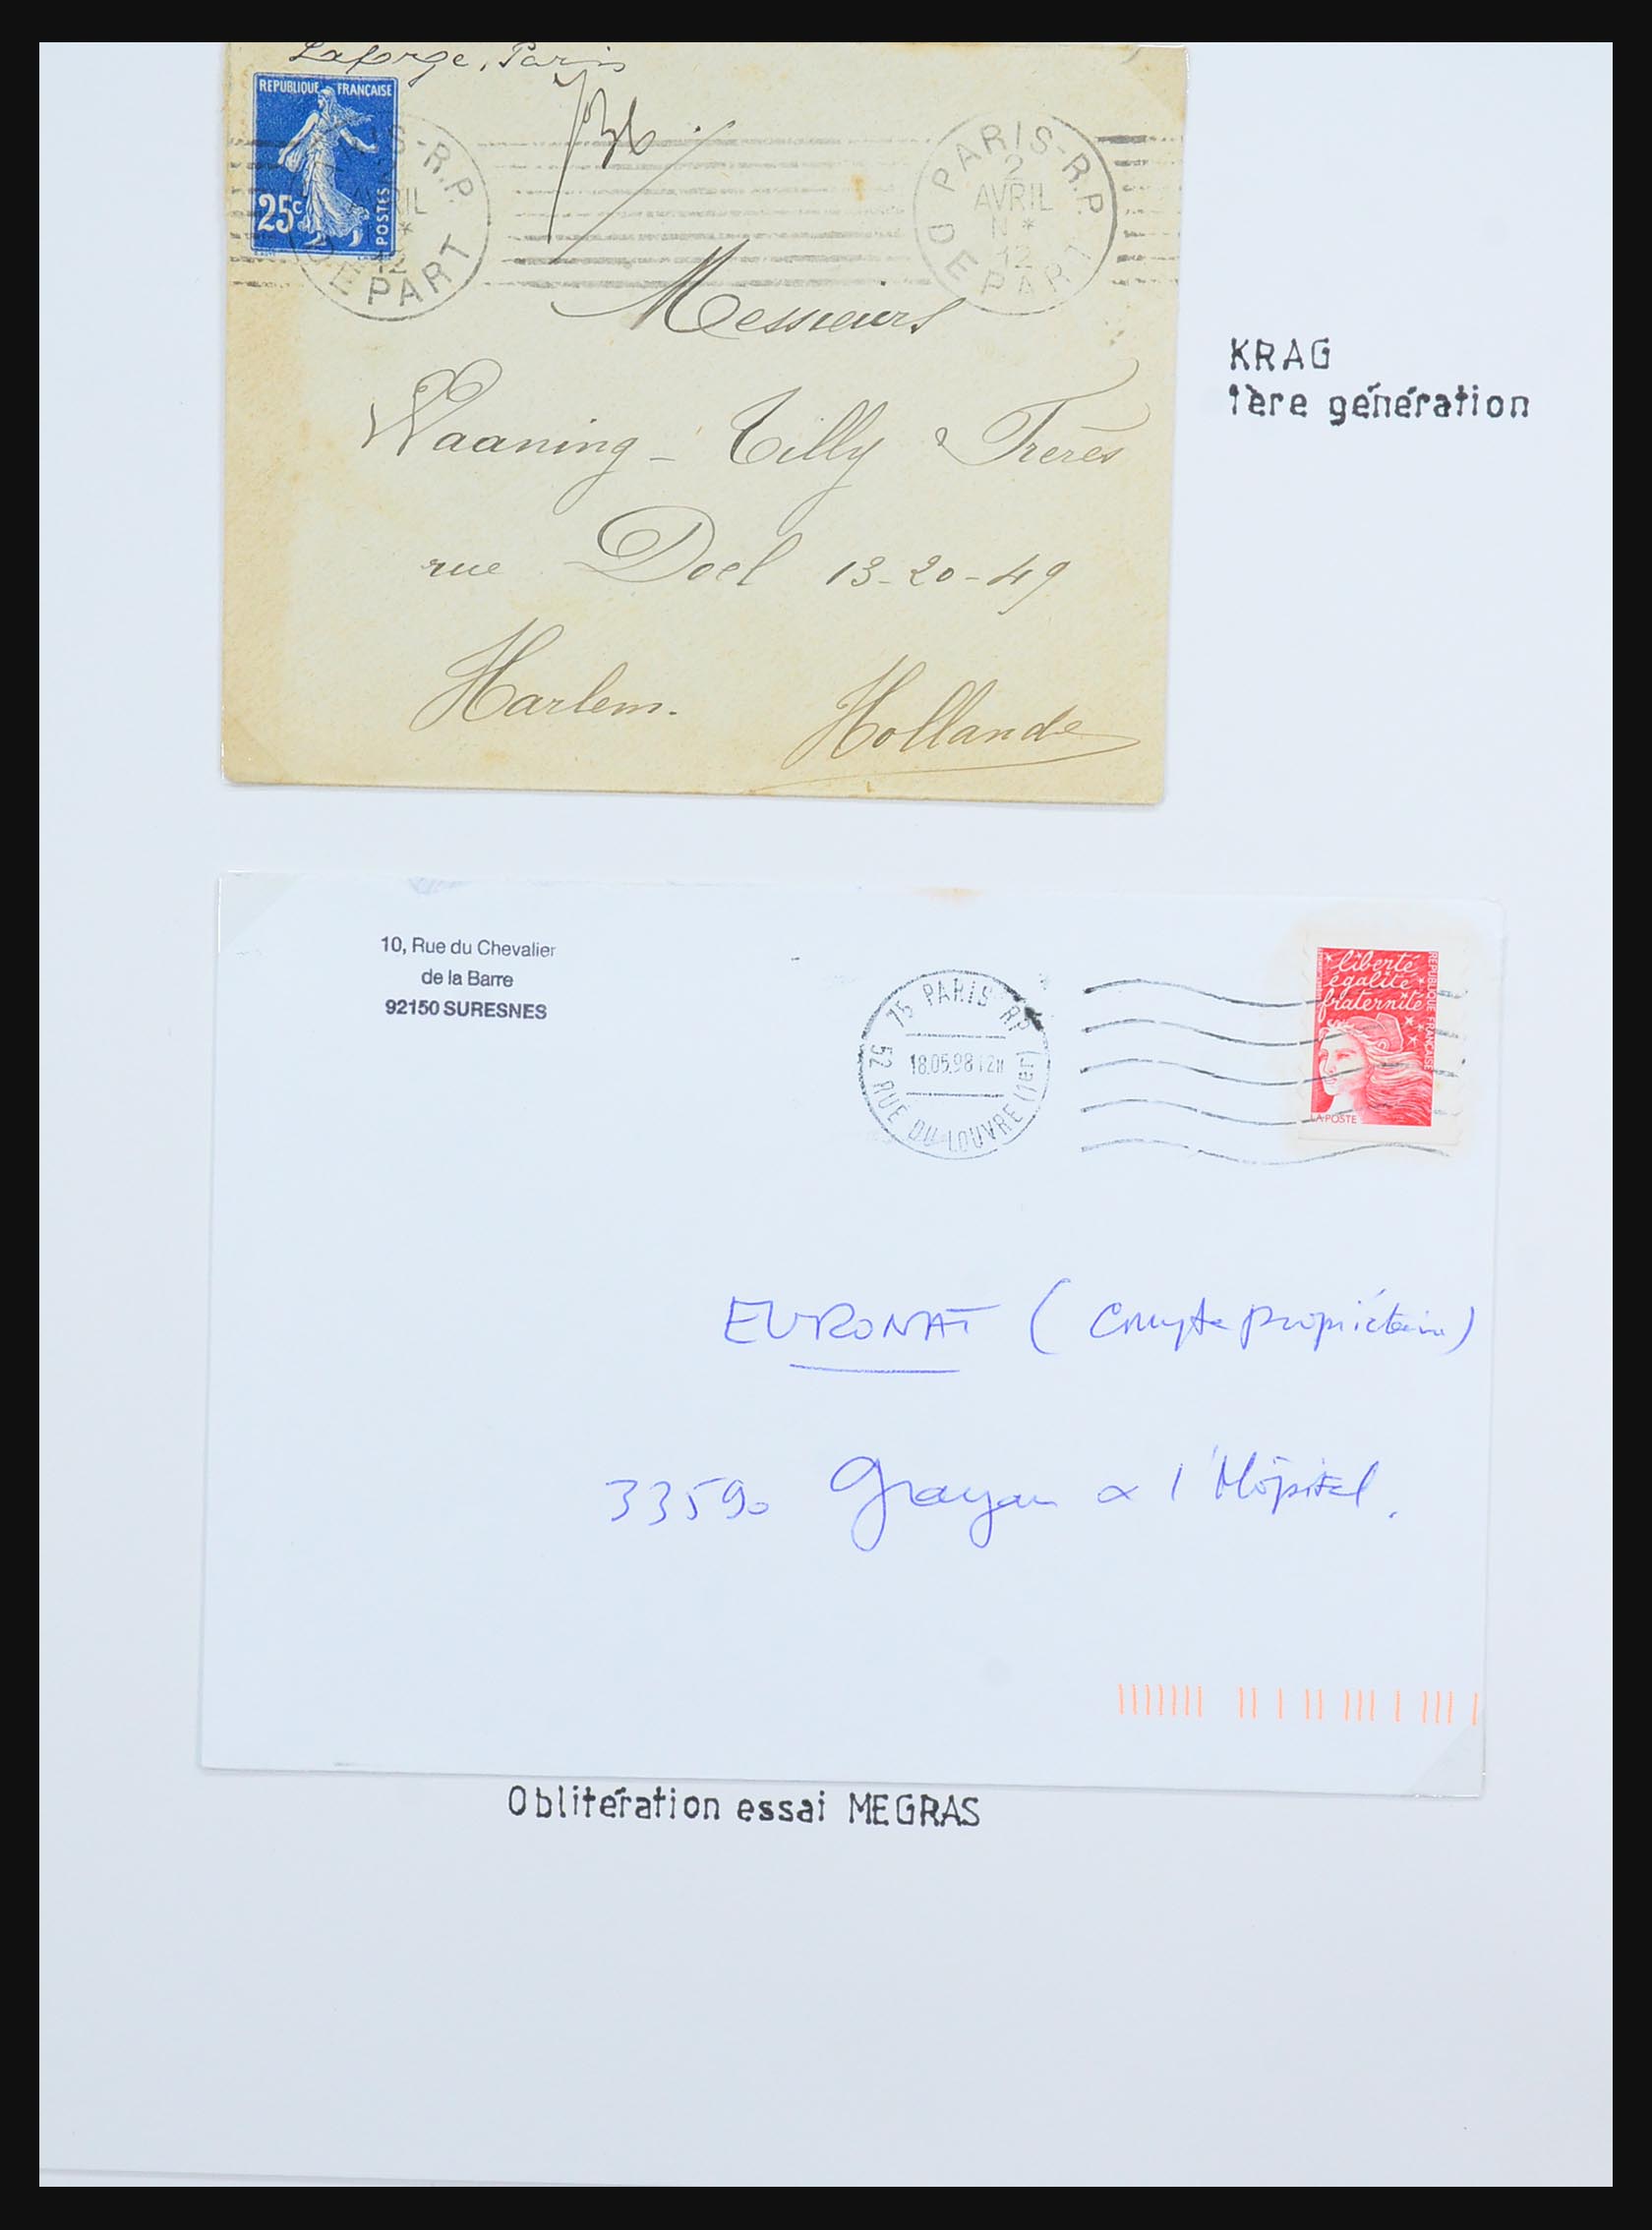 Laforge, Paris
REPUBLIQUE FRANÇAISE
25c
POSTES
PARIS-R.P.
AVRIL
*
12
DEPART
PARIS-R.P.
2
AVRIL
N*
12
DEPART
Messieurs
Waaning-Tilly Frères
rue Doel 13-20-49
Harlem.
Hollande
KRAG
1ère génération
10, Rue du Chevalier
de la Barre
92150 SURESNES
75 PARIS RP
18.05.98 12H
52 RUE DU LOUVRE (1er)
liberté
égalité
fraternité
REPUBLIQUE FRANÇAISE
LA POSTE
EURONAT (Compte propriétaire)
33590 Grayan à l'Hôpital.
Oblitération essai MEGRAS